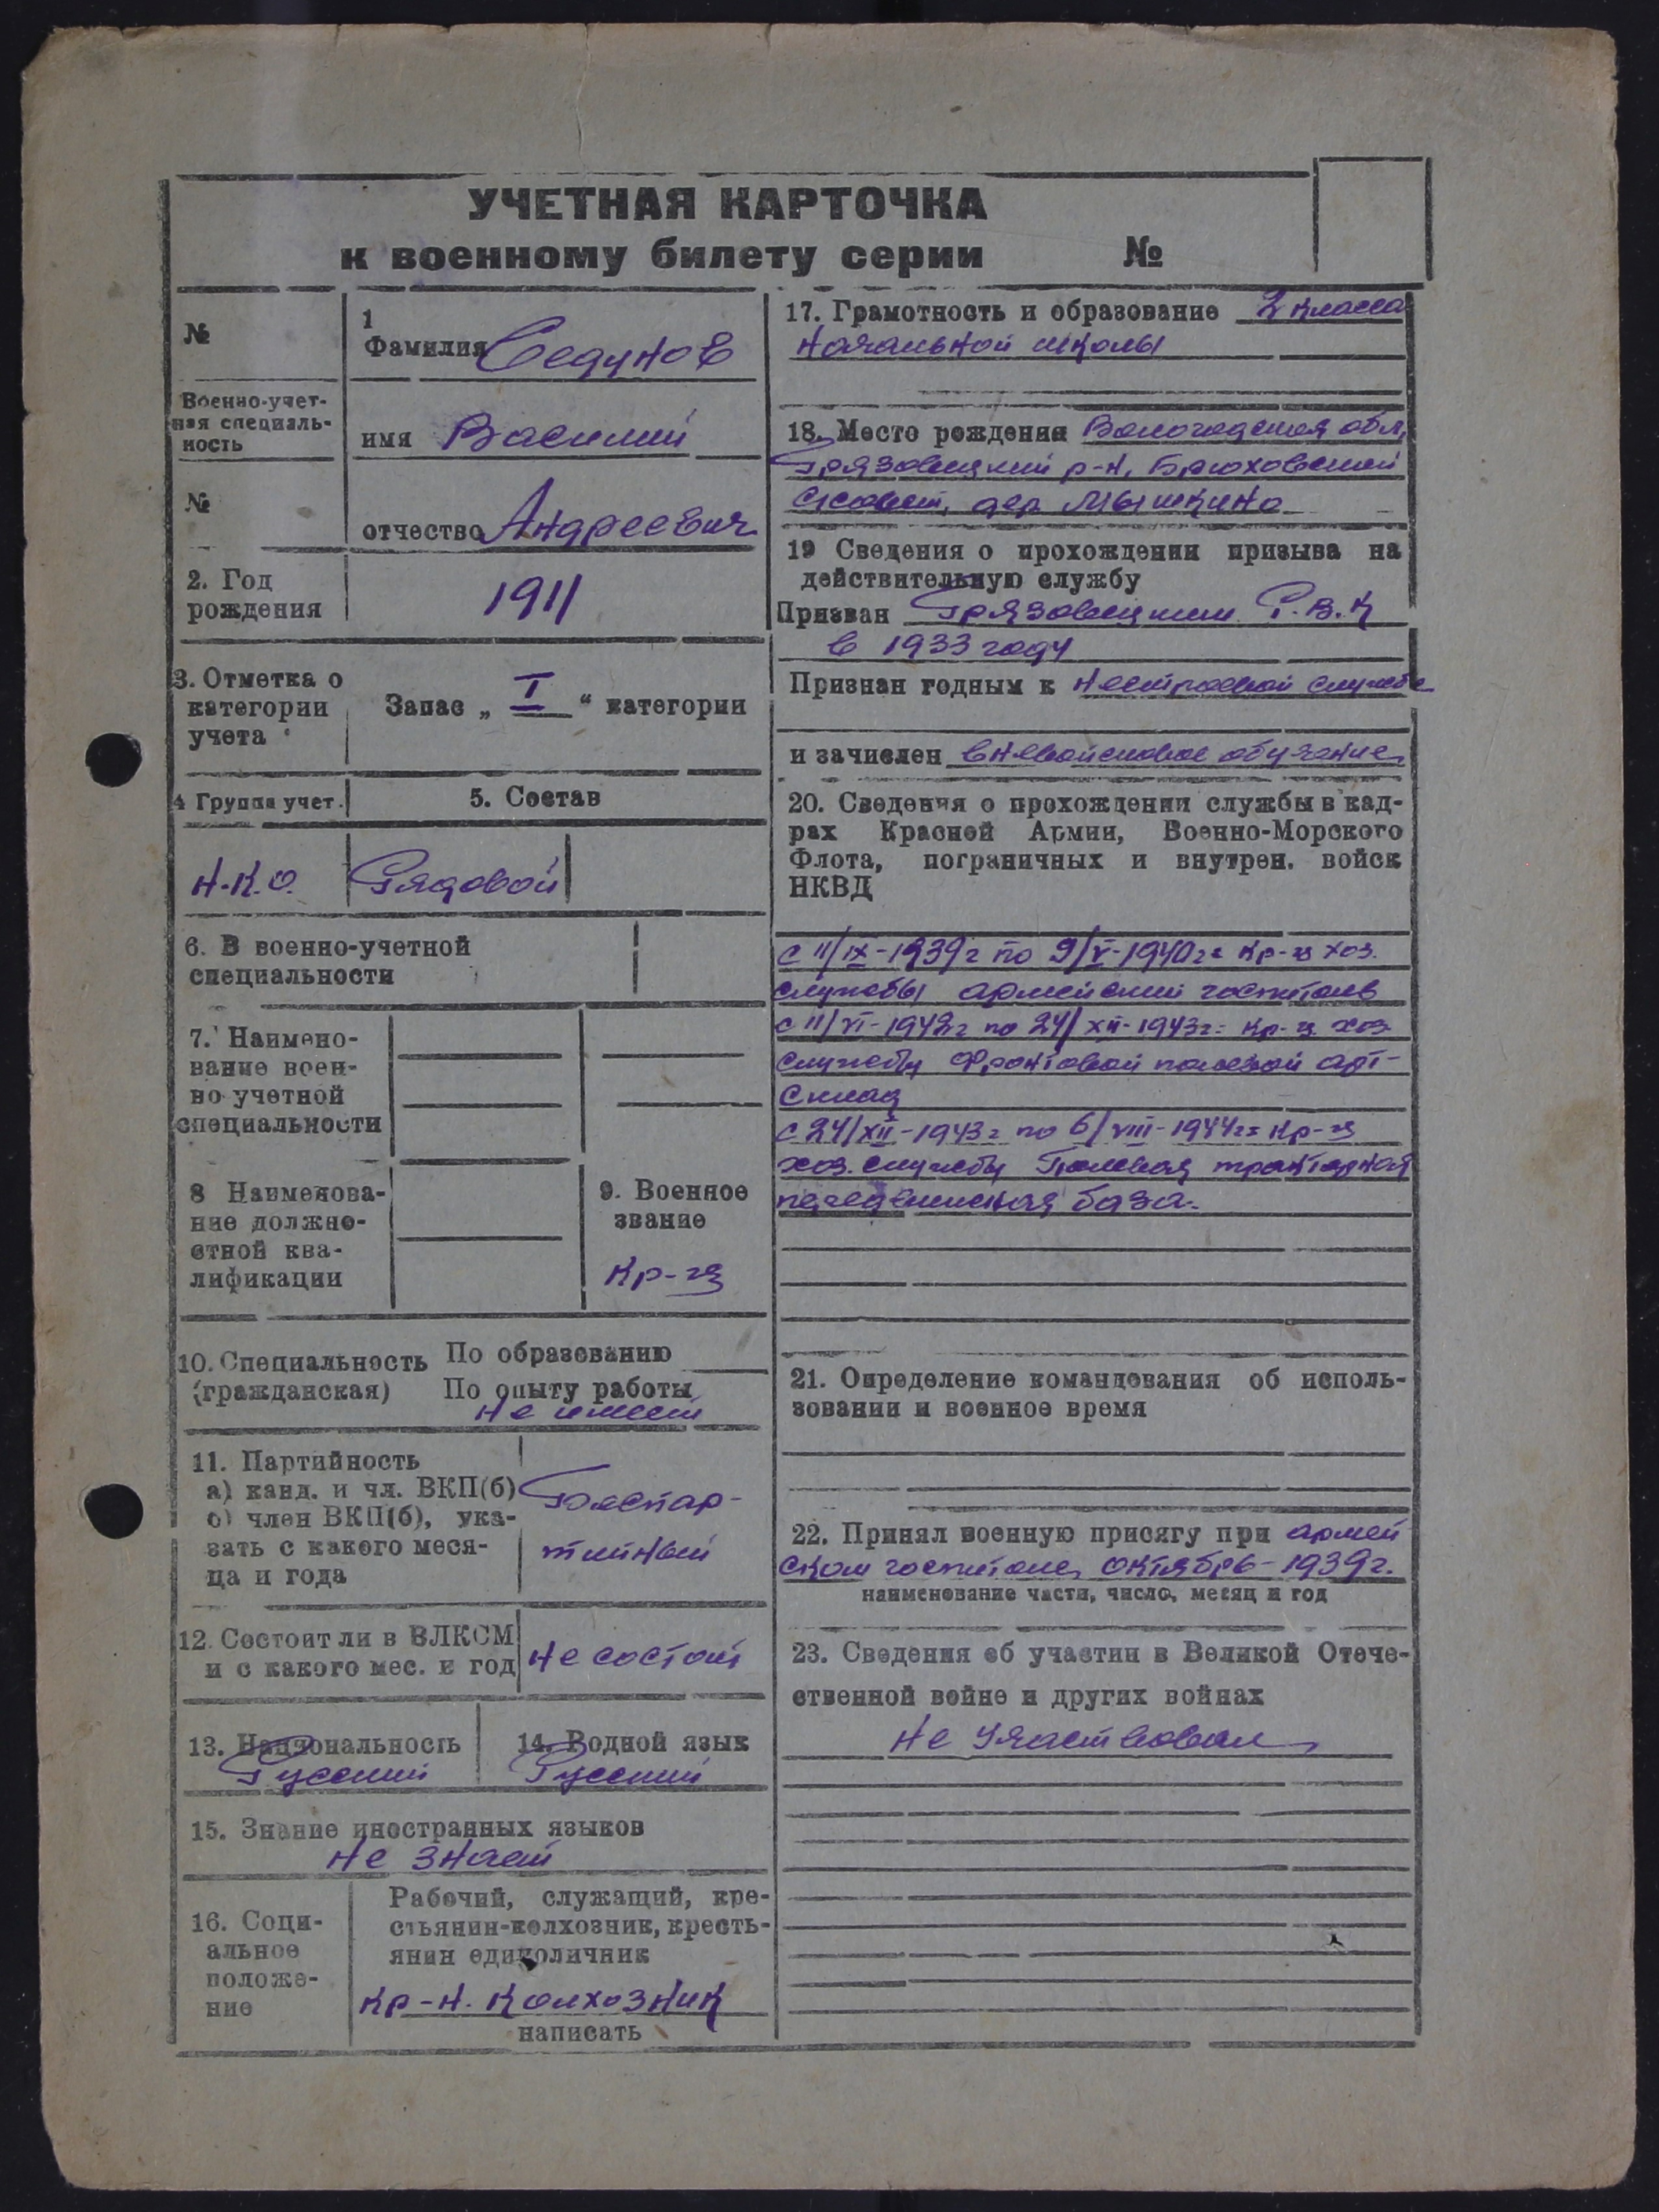 УЧЕТНАЯ КАРТОЧКА
к военному билету серии №
№
Военно-учет-
ная специаль-
ность
№
1
Фамилия Седунов
имя Василий
отчество Андреевич
2. Год
рождения
1911
3. Отметка о
категории
учета
Запас „ I “ категории
4 Группа учет.
5. Состав
Н.К.О.
Рядовой
6. В военно-учетной
специальности
7. Наимено-
вание воен-
но учетной
специальности
8 Наименова-
ние должно-
стной ква-
лификации
9. Военное
звание
Кр-ц
10. Специальность
(гражданская)
По образованию
По опыту работы
Не имеет
11. Партийность
а) канд. и чл. ВКП(б)
б) член ВКП(б), ука-
зать с какого меся-
ца и года
Беспар-
тийный
12. Состоит ли в ВЛКСМ
и с какого мес. и год
Не состоит
13. Национальность
Русский
14. Родной язык
Русский
15. Знание иностранных языков
Не знает
16. Соци-
альное
положе-
ние
Рабочий, служащий, кре-
стьянин-колхозник, кресть-
янин единоличник
Кр-н. Колхозник
написать
17. Грамотность и образование 2 класса
Начальной школы
18. Место рождения Вологодская обл,
Грязовецкий р-н, Брюховский
с/совет, дер Мышкино
19 Сведения о прохождении призыва на
действительную службу
Призван Грязовецким Р.В.К
в 1933 году
Признан годным к Нестроевой службе
и зачислен вневойсковое обучение
20. Сведения о прохождении службы в кад-
рах Красной Армии, Военно-Морского
Флота, пограничных и внутрен. войск
НКВД
с 11/IX-1939г по 9/V-1940г= Кр-ц хоз.
службы армейский госпиталь
с 11/VI-1942г по 24/XII-1943г= Кр-ц хоз
службы Фронтовой полевой арт-
склад
с 24/XII-1943г по 6/VIII-1944г= Кр-ц
хоз. службы Полевая
база.
21. Определение командования об исполь-
зовании и военное время
22. Принял военную присягу при армей
ском госпитале, октябрь-1939г.
наименование части, число, месяц и год
23. Сведения об участии в Великой Отече-
ственной войне и других войнах
Не участвовал